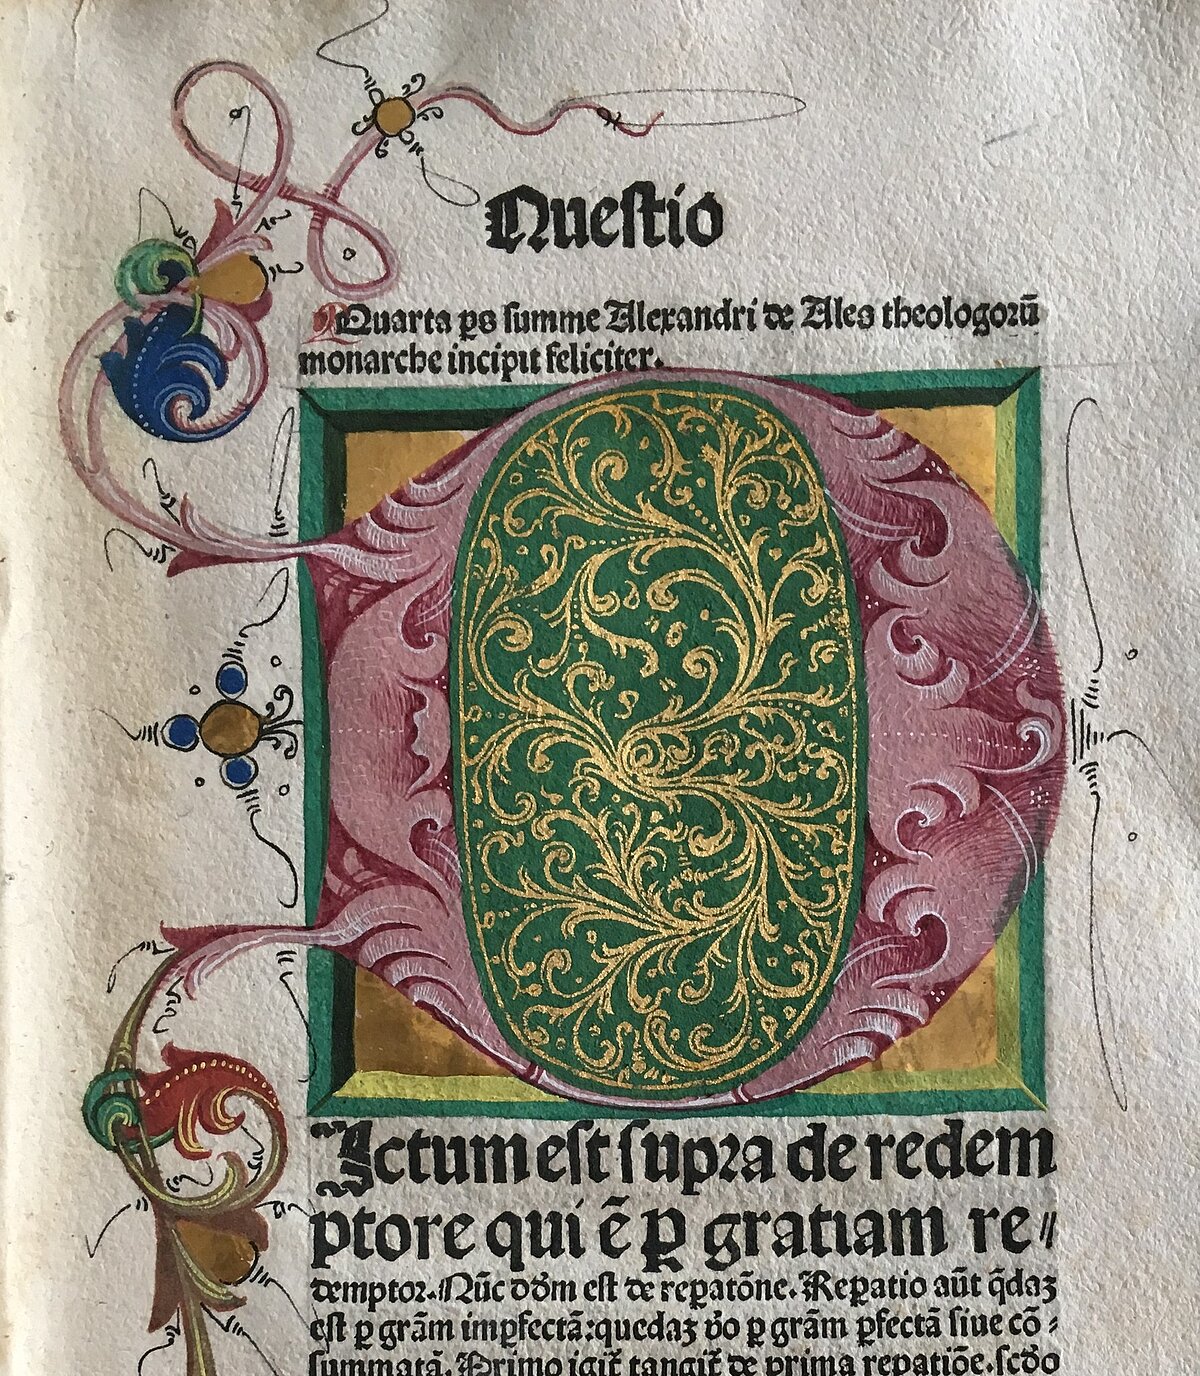 Questio
Quarta ꝑs ſumme Alexandri de Ales theologoꝝ̄
monarche incipit feliciter.
D
Ictum eſt ſupꝛa de redem
ptore qui ē ꝑ gratiam re⸗
demptoꝛ. Nūc dōm eſt de reꝑatōne. Reꝑatio aūt q̄daꝫ
eſt ꝑ grām imꝑfectā: quedaꝫ ꝟo ꝑ grām ꝑfectā ſiue cō⸗
ſummatā. Primo igit᷑ tangit᷑ de prima reꝑatiōe. ſcd̄o